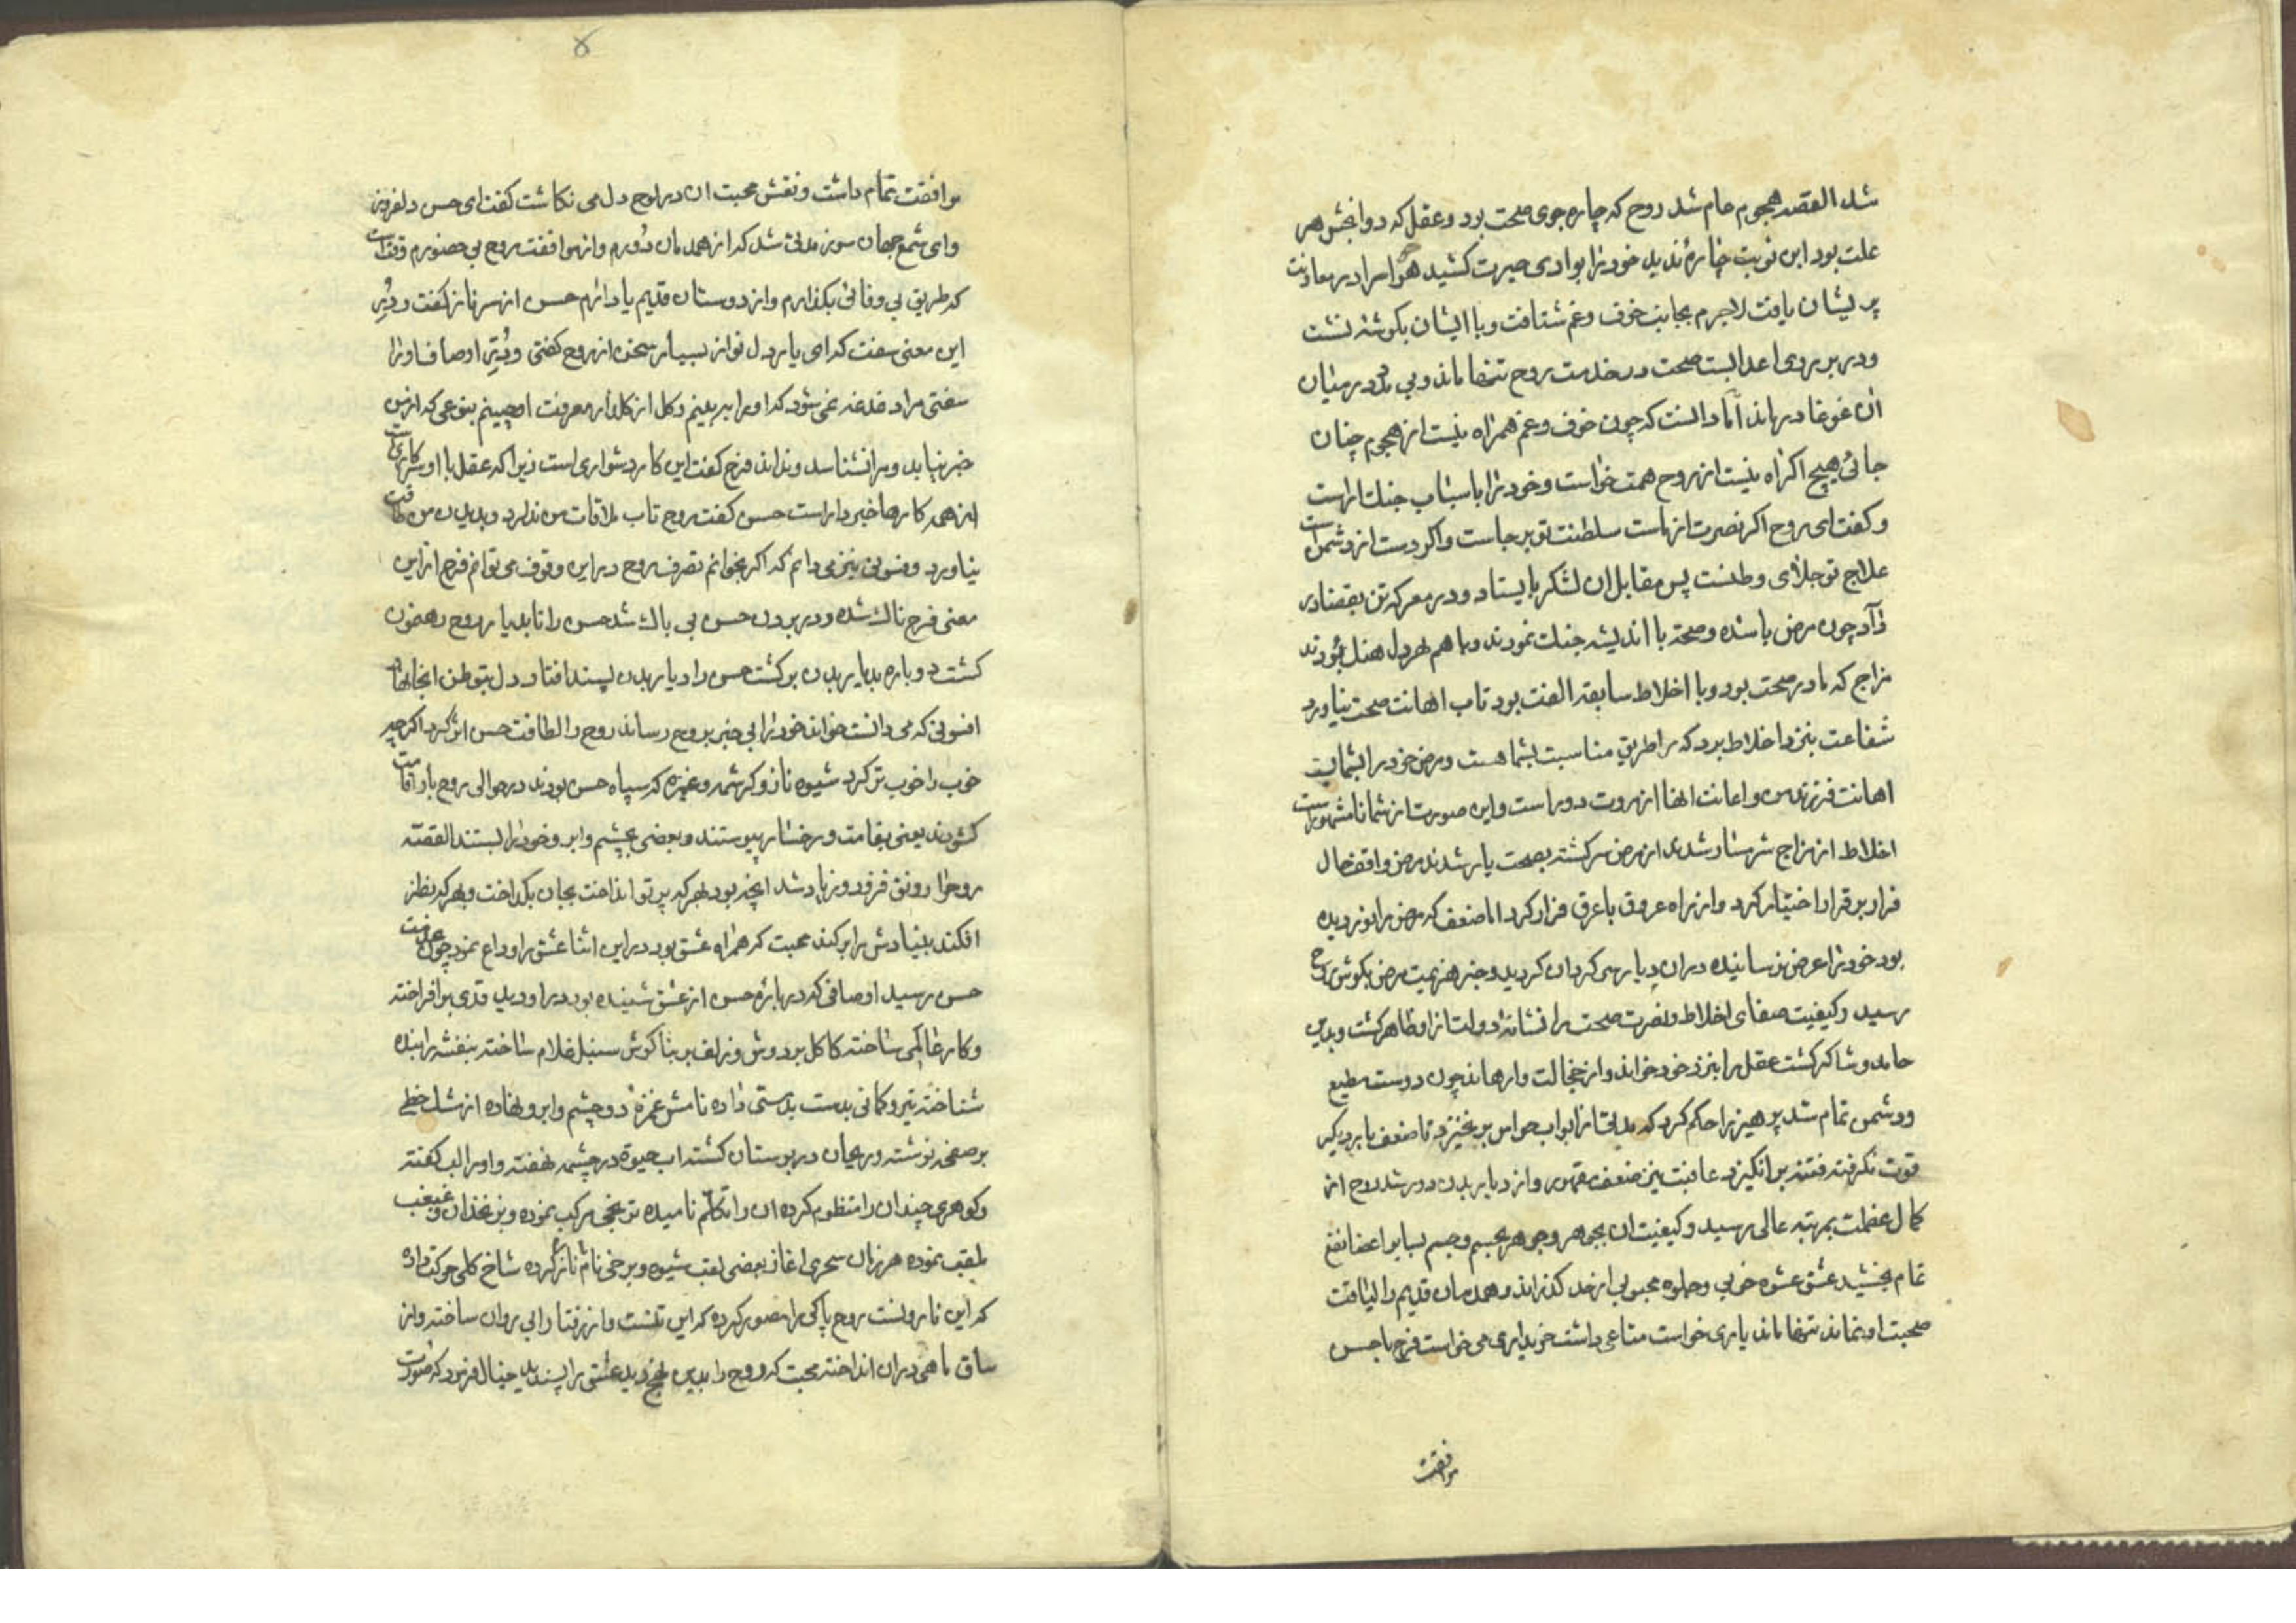 شد القصه هجوم عام شد روح که چاره جوی صحت بود و عقل که دوابخش هر
علت بود این نوبت چاره ندید خود را بوادی حیرت کشید هوا را در معاونت
پریشان یافت لاجرم بجانب خوف و غم شتافت و با ایشان بگوشه نشست
و در بر روی اعدا بست صحت در خدمت روح تنها ماند و بی مدد در میان
آن غوغا درماند آما دانست که چون خوف و غم همراه نیست از هجوم چنان
جائی هیچ اکراه نیست از روح همت خواست و خود را باسباب جنک اراست
و کفت ای روح اکر نصرت از ماست سلطنت تو بر جاست و اکر دست از دشمن است
علاج تو جلای وطنست پس مقابل ان لشکر بایستاد و در معرکه تن بقضا در
داد چون مرض باشده و صحة با اندیشه جنک نمودند و با هم
مزاج که مادر صحت بود و با اخلاط سابقه الفت بود تاب اهانت صحت نیاورد
شفاعت بنزد اخلاط برد که مرا طریق مناسبت بشما هست و مرض خود را بشما بست
اهانت فرزند من و اعانت انها از مروت دور است و این صورت از شما نامشهور است
اخلاط از مزاج شرمسار شدند از مرض سرکشته بصحت یار شدند مرض واقف حال
فرار بر قرار اختیار کرد و از راه عروق با عرق فرار کرد اما ضعف که مرض را بدرقه
بود خود را عرض نرسانیده در ان دیار سرکردان کردید و خبر هزیمت مرض بکوش روح
رسید و کیفیت صفای اخلاط و نصرت صحت را نشانه دولت از او ظاهر کشت و بدین
حامد و شاکر کشت عقل را بنزد خود خواند و از خجالت وارهاند چون دوست مطیع
و دشمن تمام شد پرهیز را حکم کرد که مدتی از ابواب حواس برنخیزد تا ضعف بار دیکر
قوت نکرفته فتنه برانکیزد عاقبت نیز ضعف مقهور و از دیار بدن دور شد روح از
کمال عظمت بمرتبه عالی رسید و کیفیت ان بجوهر و جوهر بجسم و جسم بسایر اعضا نفع
تمام بخشید عشق عشوه خوبی و جلوه محبوبی از حد کذراند و همدمان قدیم را لیاقت
صحبت او نماند تنها ماند یاری خواست متاعی داشت خریداری می خواست فرح با حسن
موافقت
موافقت تمام داشت و نقش محبت ان در لوح دل می نکاشت کفت ای حسن دلفروز
وای شمع جهان سوز مدتی شد که از همدمان دورم و از موافقت روح بی حضورم وقت است
که طریق بی وفائی بکذارم و از دوستان قدیم یاد ارم حسن از سر ناز کفت و در
این معنی سفت که ای یار دل نواز بسیار سخن از روح کفتی و در اوصاف او را
سفتی مرا دغدغه می شود که او را ببینم و کل از کلزار معرفت او چینم بنوعی که از من
خبر نیابد و مرا نشناسد و نداند فرح کفت این کار دشواری است زیرا که عقل با او
از همه کارها خبردار است حسن کفت روح تاب ملاقات من ندارد و بدیدن من طاقت
نیاورد و فسونی نیز می دانم که اکر بخوانم تصرف روح در این وقوف می توانم فرح از این
معنی فرحناک شده و در بردن حسن بی باک شد حسن را تا بدیار روح رهنمون
کشت دوباره بدیار بدن برکشت حسن را دیار بدن پسند افتاد و دل بتوطن انجا نهاد
افسونی که می دانست خواند خود را بی خبر بروح رساند روح را لطافت حسن اثر کرد اکرچه
خوب را خوب تر کرد شیوه ناز و کرشمه و غمزه که سپاه حسن بودند در حوالی روح بار اقامت
کشودند بعضی بقامت و رخسار پیوستند و بعضی بچشم و ابرو خود را بستند القصه
روح را رونق فزود و زیاد شد انچه بود بهر که پرتو انداخت بجان بکداخت و بهر که نظر
افکند بنیادش را بر کند محبت که همراه عشق بود در این اثنا عشق را وداع نمود چون بخدمت
حسن رسید اوصافی که درباره حسن از عشق شنیده بود در او دید قدی برافراخته
و کار عالمی ساخته کاکل بر دوش و زلف بر بناکوش سنبل غلام ساخته بنفشه را بنده
شناخته تیر و کمانی بدست بدمستی داده نامش غمزه دو چشم و ابرو نهاده از مشک خطی
بر صفحه نوشته و ریحان در بوستان کشته اب حیوة در چشمه نهفته و او را لب کفته
و کوهری چندان را منظوم کرده ان را تکلم نامیده ترنجی مرکب نموده و بزنخدان و غبغب
ملقب نموده هر زمان سحری اغاز بعضی لقب شیوه و برخی نام ناز کرده شاخ کلی حرکت داده
که این نارونست روح پاکی را مصور کرده که این تنست و از رفتار ابی روان ساخته و از
ساق ماهی در ان انداخته محبت که روح را بدین نهج دید عشق را پسندید خیال فرمود که صورت